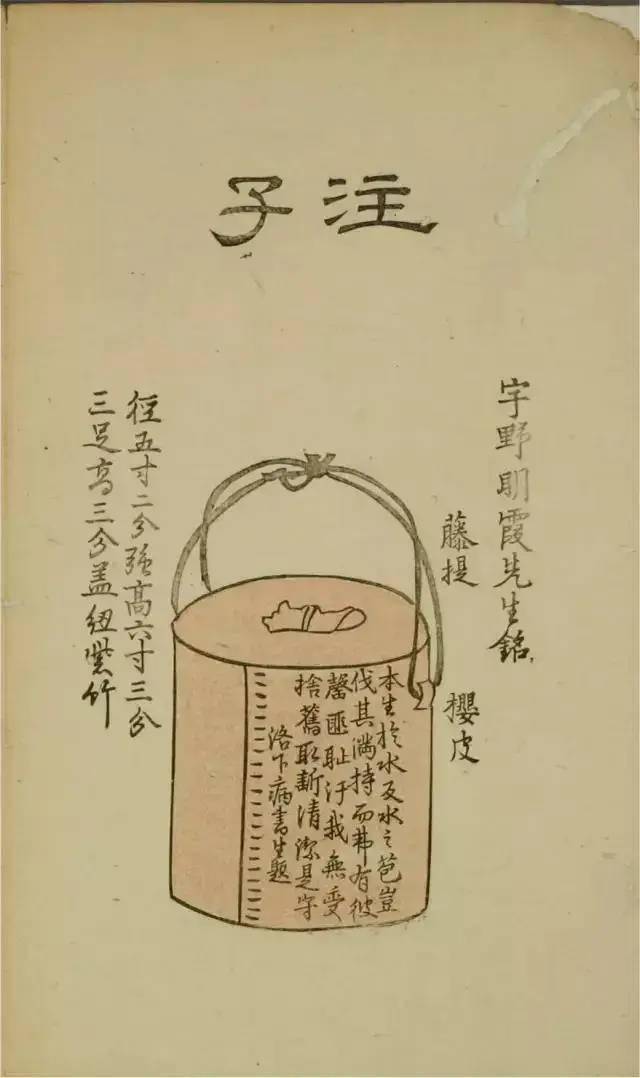 注子
宇野明霞先生銘
藤提
櫻皮
本生於水及水之苞豈
伐其満持而弗有彼
罄匪耻汙我無受
捨舊取新清潔是守
洛下病書生題
徑五寸二分強高六寸三分
三足高三分盖紐紫竹